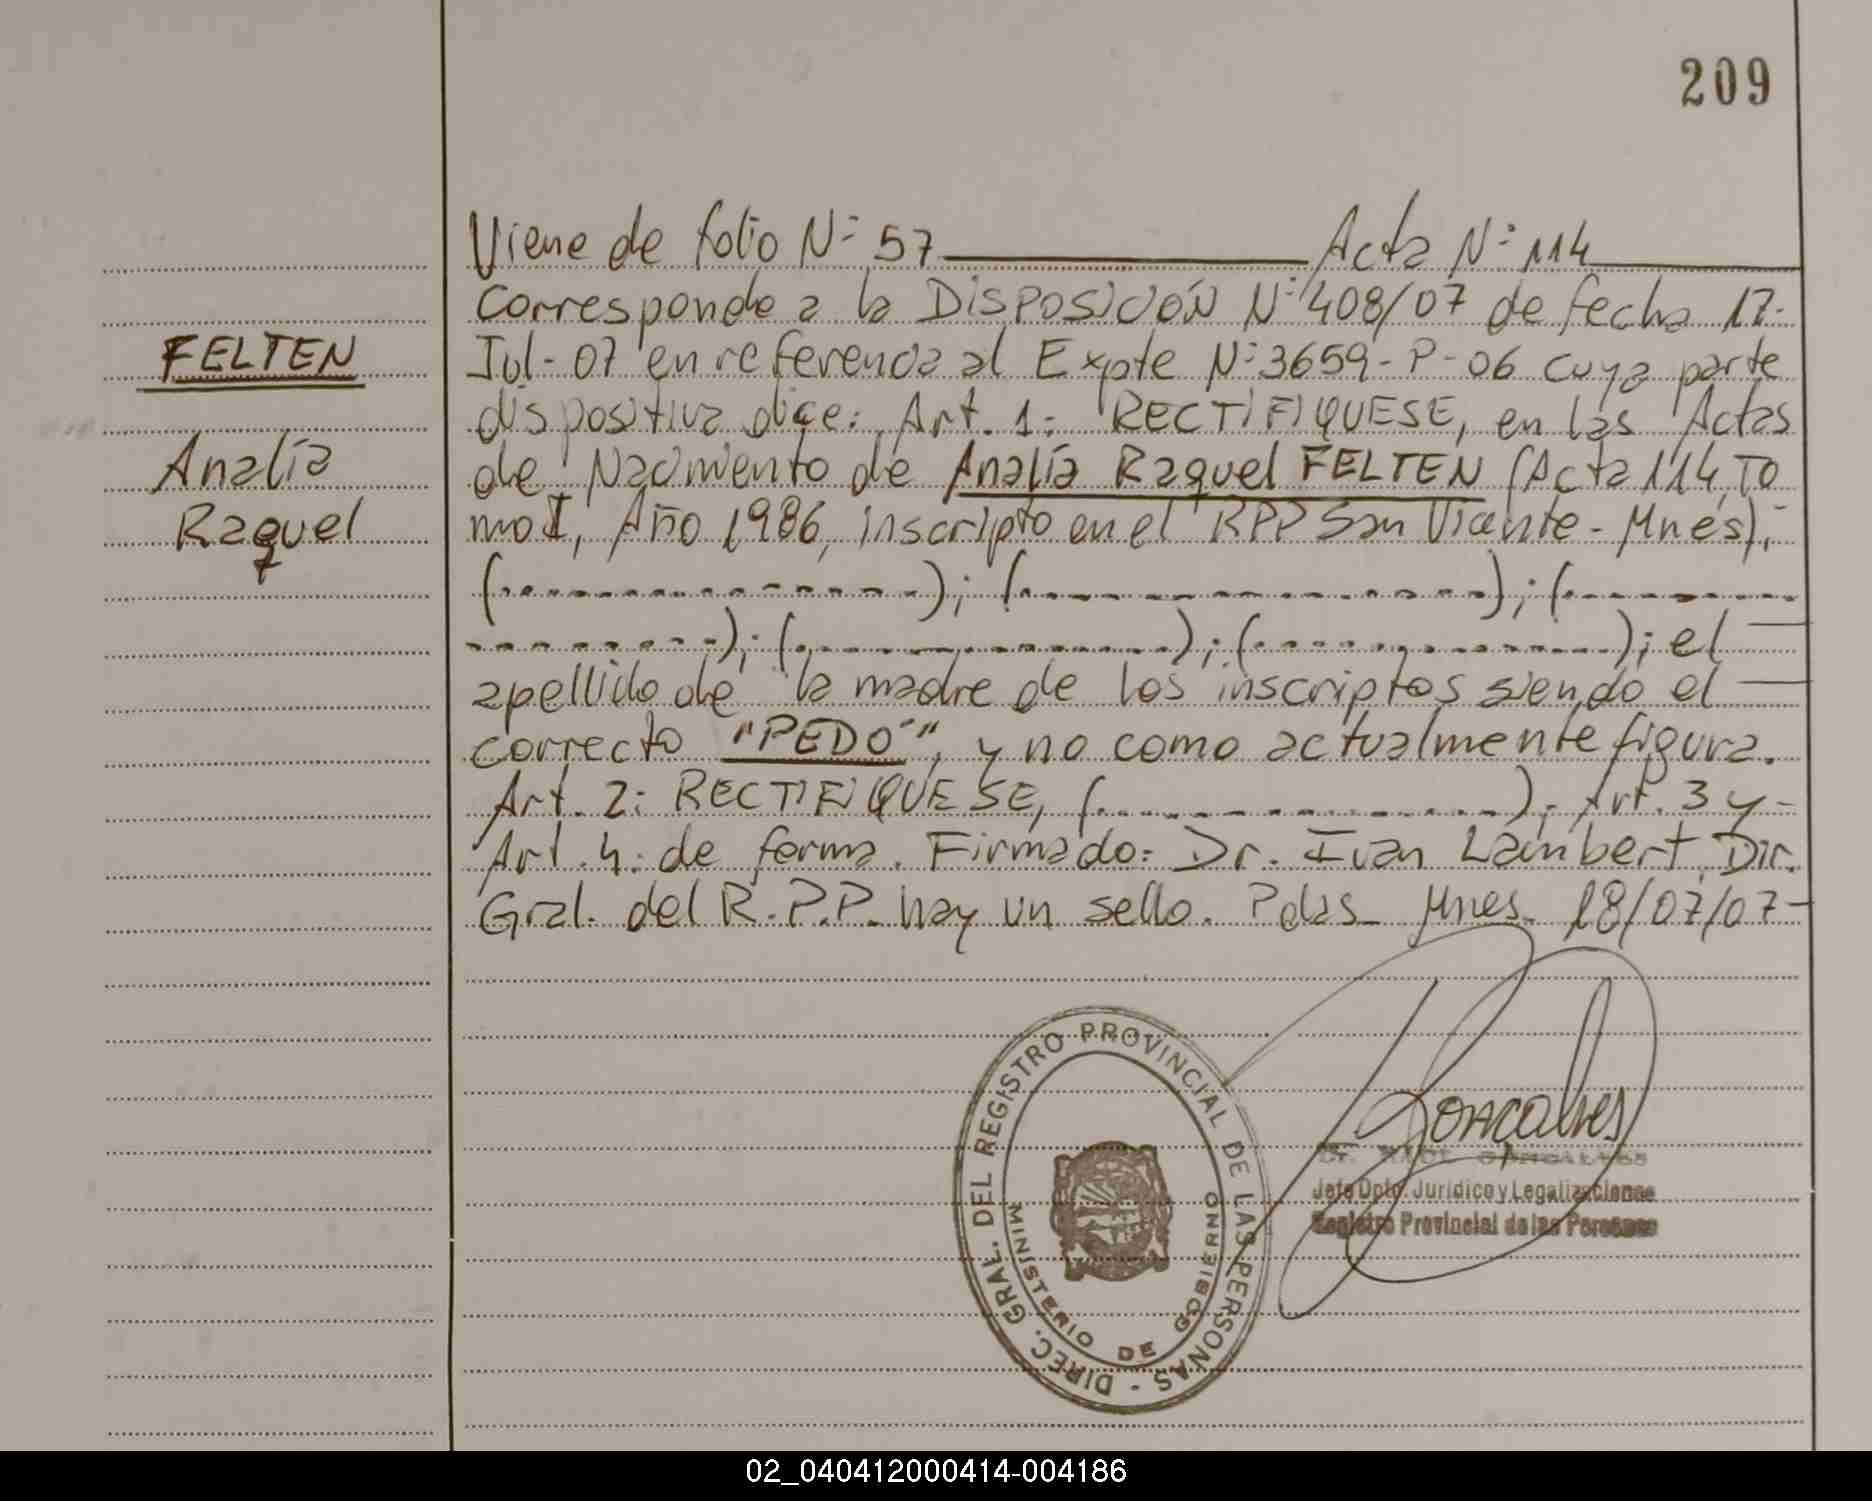 209
Viene de folio Nº 57 Acta Nº 114
Corresponde a la DISPOSICIÓN Nº 408/07 de fecha 17-
Jul-07 en referencia al Expte Nº 3659-P-06 cuya parte
dispositiva dice: Art. 1: RECTIFIQUESE, en las Actas
de Nacimiento de Analía Raquel FELTEN (Acta 114, To
mo I, Año 1986, inscripto en el RPP San Vicente - Mnes);-
(--------------); (----------------); (--------
---------); (--------------); (--------------); el
apellido de la madre de los inscriptos siendo el
correcto "PEDÓ", y no como actualmente figura.
Art. 2: RECTIFIQUESE, (----------------); Art. 3 y-
Art. 4: de forma. Firmado: Dr. Ivan Lambert, Dir.
Gral. del R.P.P. hay un sello. Pdas- Mnes. 18/07/07-
FELTEN
Analía
Raquel
DIREC. GRAL. DEL REGISTRO PROVINCIAL DE LAS PERSONAS -
MINISTERIO DE GOBIERNO
Gonçalves
Dr. RAUL GONCALVES
Jefe Dpto. Jurídico y Legalizaciones
Registro Provincial de las Personas
02_040412000414-004186